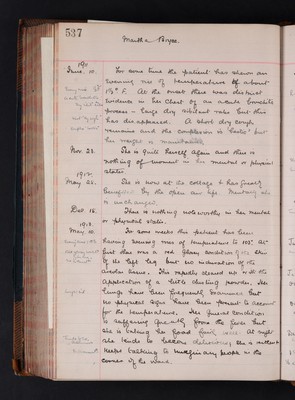 537
Martha Boyce.
1911
June. 10. For some time the patient has shown an
evening rise of temperature of about
1½° F. At the onset there was distinct
evidence in her chest of an acute bronchitis
process - large dry sibilant rales but this
has disappeared. A short dry cough
remains and the complexion is hectic but
her weight is maintained.
Nov. 23. She is quite herself again and there is
nothing of moment in her mental or physical
states.
1912.
May. 25. She is now at the cottage & has greatly
benefited by the open air life. Mentally she
is unchanged.
Dec 15. There is nothing noteworthy in her mental
or physical state.
1913.
May. 10. For some weeks this patient has been
having evening rises of temperature to 102°. At
first there was a red glazy condition of the skin
of the left leg but no induration of the
areolar tissue. This rapidly cleared up with the
application of a dusting powder. The
lungs have been frequently examined but
no physical signs have been found to account
for the temperature. Her general condition
is suffering greatly from the fever but
she is taking her food fairly well. At night
she tends to become delirious, she
keeps talking to imaginary people in the
corner of the ward.